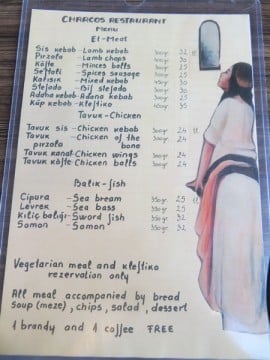 CHARCOS RESTAURANT
MENU
Et-Meat
Sis kebab -Lamb kebab 300gr 32 tl
Pirzola -Lamb chops 30
Köfte -Minces balls 25
Seftali -Spices sausage 25
Karisik -Mixed kebab 30
Stefado -Bif stefado 30
Adana kebab-Adana kebab 25
Küp kebab -Kleftiko 35
Tavuk-Chicken
Tavuk sis -Chicken kebab 300gr 24 tl
Tavuk pirzola -Chicken of the bone 24
Tavuk kanat-Chicken wings 24
Tavuk köfte-Chicken balls 24
Balik-fish
Cipura -Sea bream 25
Levrek -Sea bass 25
Kiliç baliği-Sword fish 32
Somon -Somon 32
Vegetarian meal and kleftiko
rezervation only
All meal accompanied by bread
Soup (meze), chips, salad, dessert
1 brandy and 1 coffee FREE